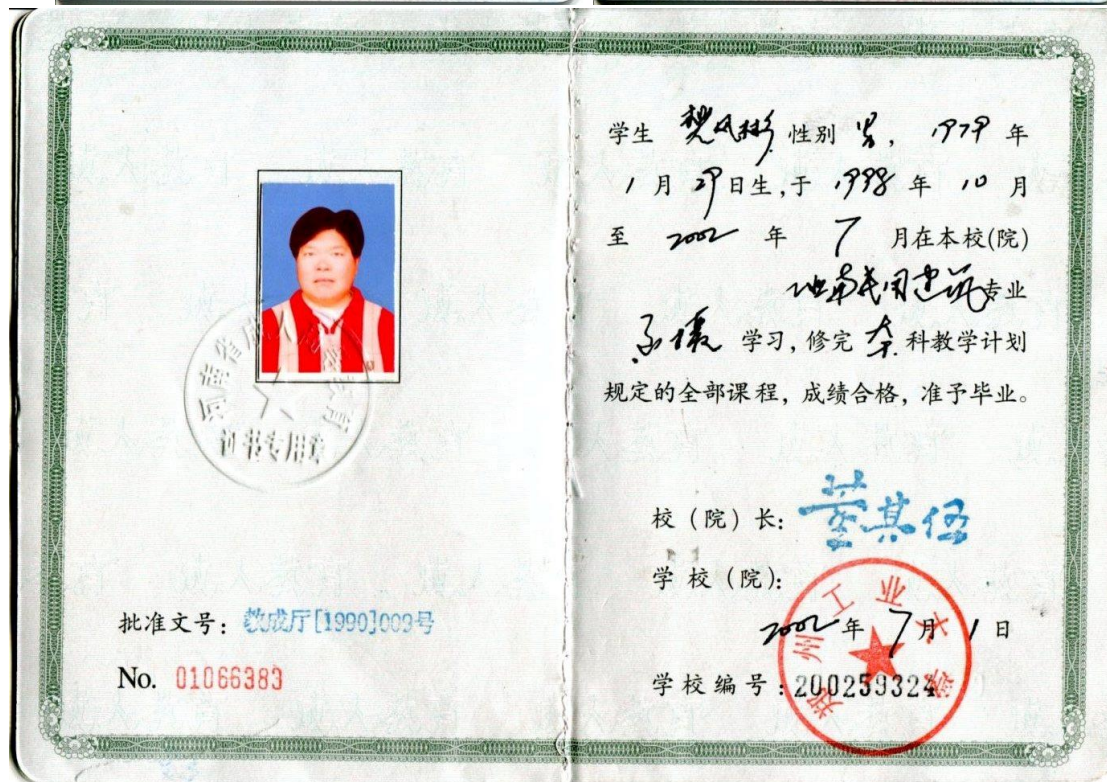 河南省成人高等教育
证书专用章
批准文号：教成厅[1990]003号
No. 01066383
学生 樊风彬 性别 男，1979 年
1 月 29 日生，于 1998 年 10 月
至 2002 年 7 月在本校(院)
工业与民用建筑专业
函授 学习，修完 本 科教学计划
规定的全部课程，成绩合格，准予毕业。
校（院）长：董其伍
学 校（院）：
郑州工业大学
2002 年 7 月 1 日
学校编号：200259324